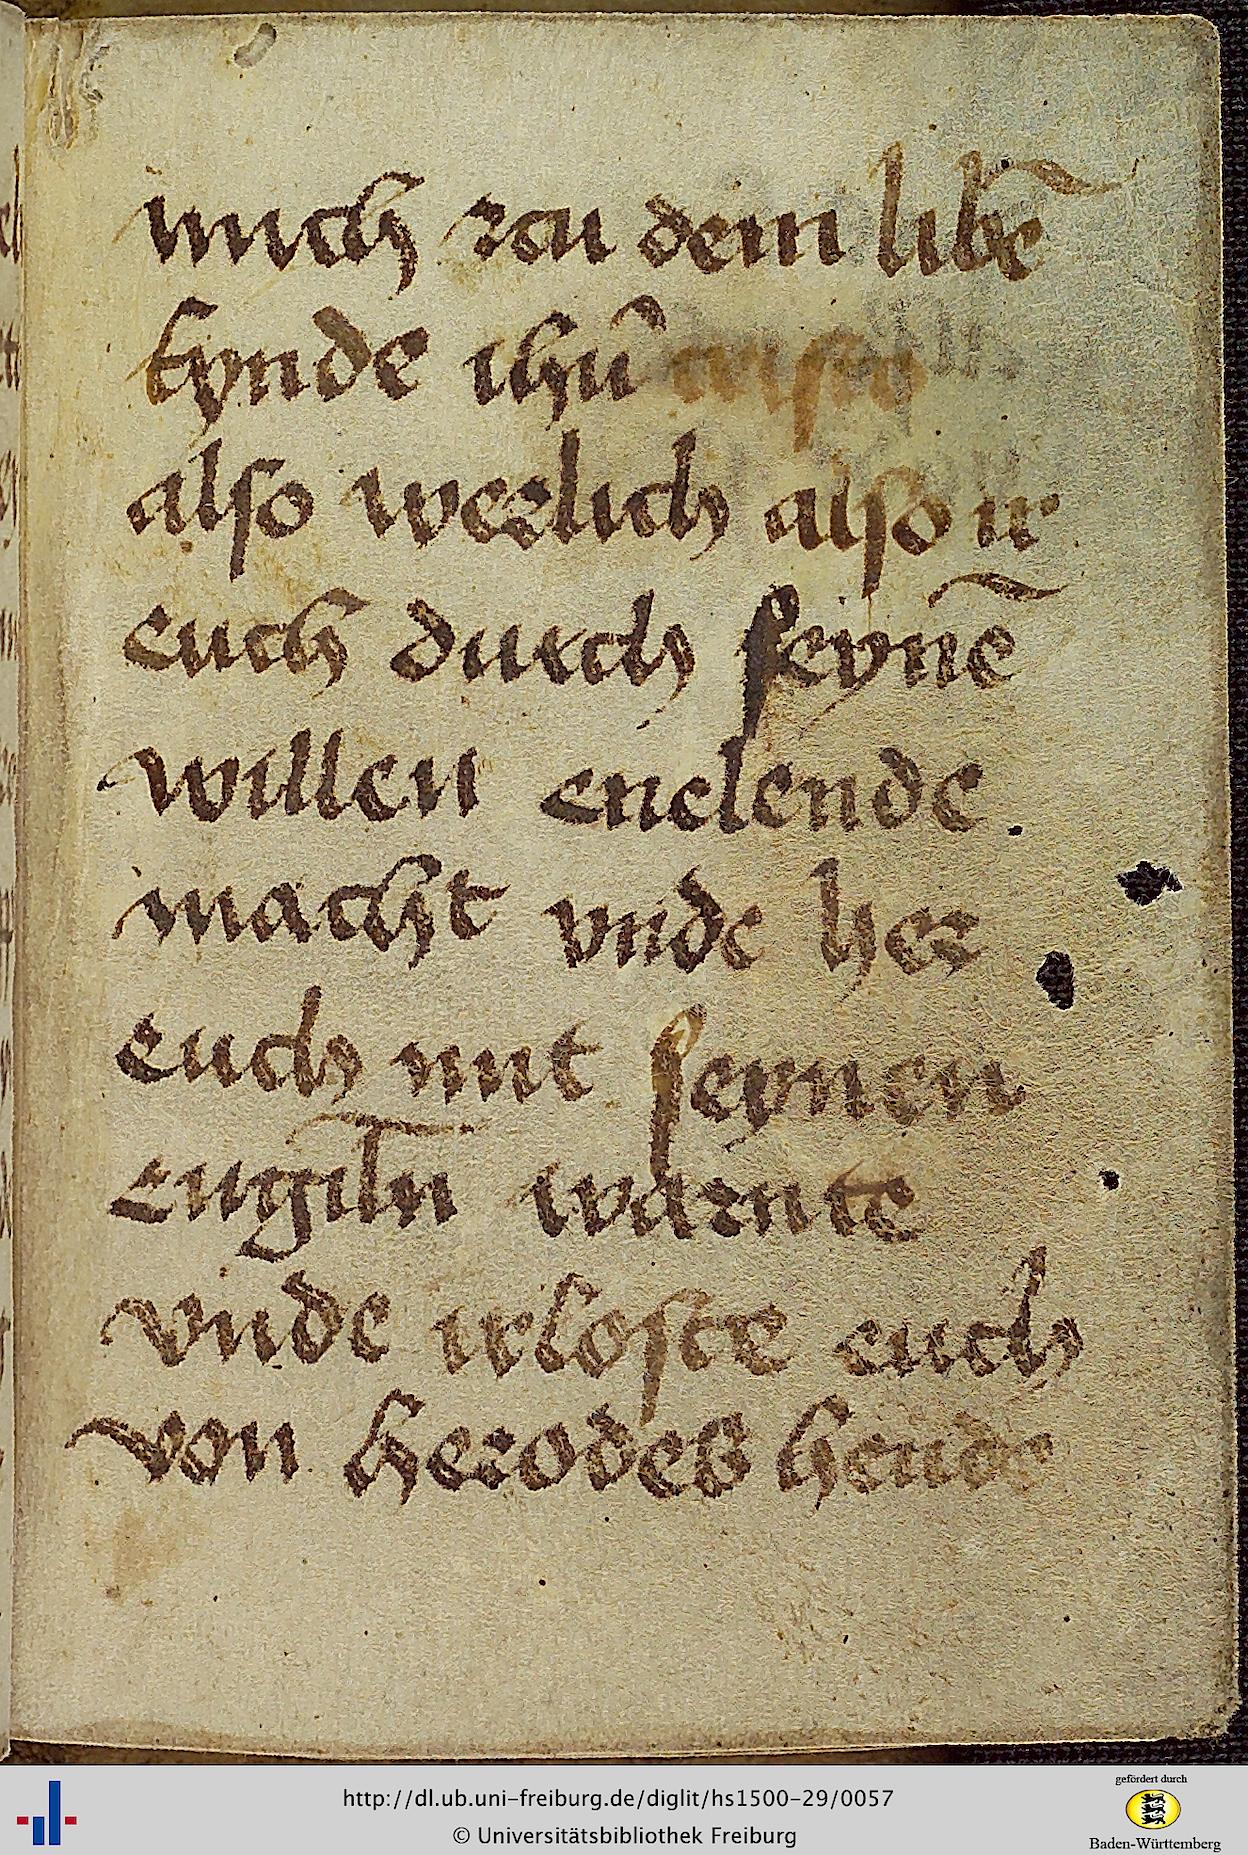 mich zcu dem libē
kynde ihū cristo
also werlich also ir
euch durch seynē
willen enelende
macht vnde her
euch mit seynen
engiln̄ warnte
vnde irloste euch
von herodes hende
http://dl.ub.uni-freiburg.de/diglit/hs1500-29/0057
© Universitätsbibliothek Freiburg
gefördert durch
Baden-Württemberg